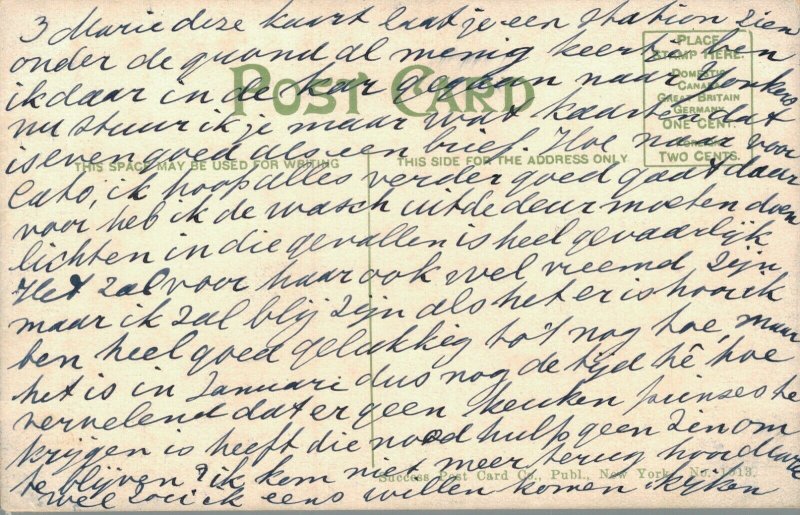 3 Marie deze kaart laat je een station zien
onder de grond al menig keertje ben
ik daar in de kar gegaan naar Jonkers
nu stuur ik je maar wat kaarten dat
is even goed als een brief. Hoe naar voor
Cato, ik hoop alles verder goed gaat daar
voor heb ik de wasch uit de deur moeten doen
lichten in die gevallen is heel gevaarlijk
Het zal voor haar ook wel vreemd zijn
maar ik zal blij zijn als het er is hoor ik
ben heel goed gelukkig tot nog toe, maar
het is in Januari dus nog de tijd hê, hoe
vervelend dat er geen keuken te
krijgen is heeft die noodhulp geen zin om
te blijven? ik kom niet meer terug hoor
wel zou ik eens willen komen kijken
POST CARD
PLACE
STAMP HERE.
DOMESTIC
CANADA
GREAT BRITAIN
GERMANY
ONE CENT.
FOREIGN
TWO CENTS.
THIS SPACE MAY BE USED FOR WRITING
THIS SIDE FOR THE ADDRESS ONLY
Success Post Card Co., Publ., New York. No. 1013